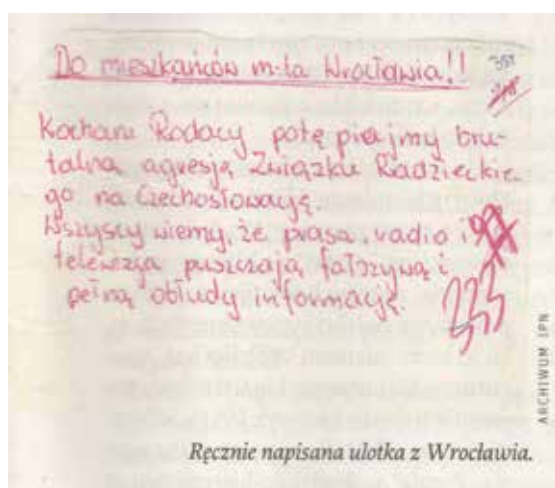 Do mieszkańców m-ta Wrocławia!!
Kochani Rodacy potę piajmy bru-
talną agresję Związku Radzieckie
go na Czechosłowację.
Wszyscy wiemy, że prasa, radio i
telewizja puszczają fałszywą i
pełną obłudy informację.
ARCHIWUM IPN
Ręcznie napisana ulotka z Wrocławia.